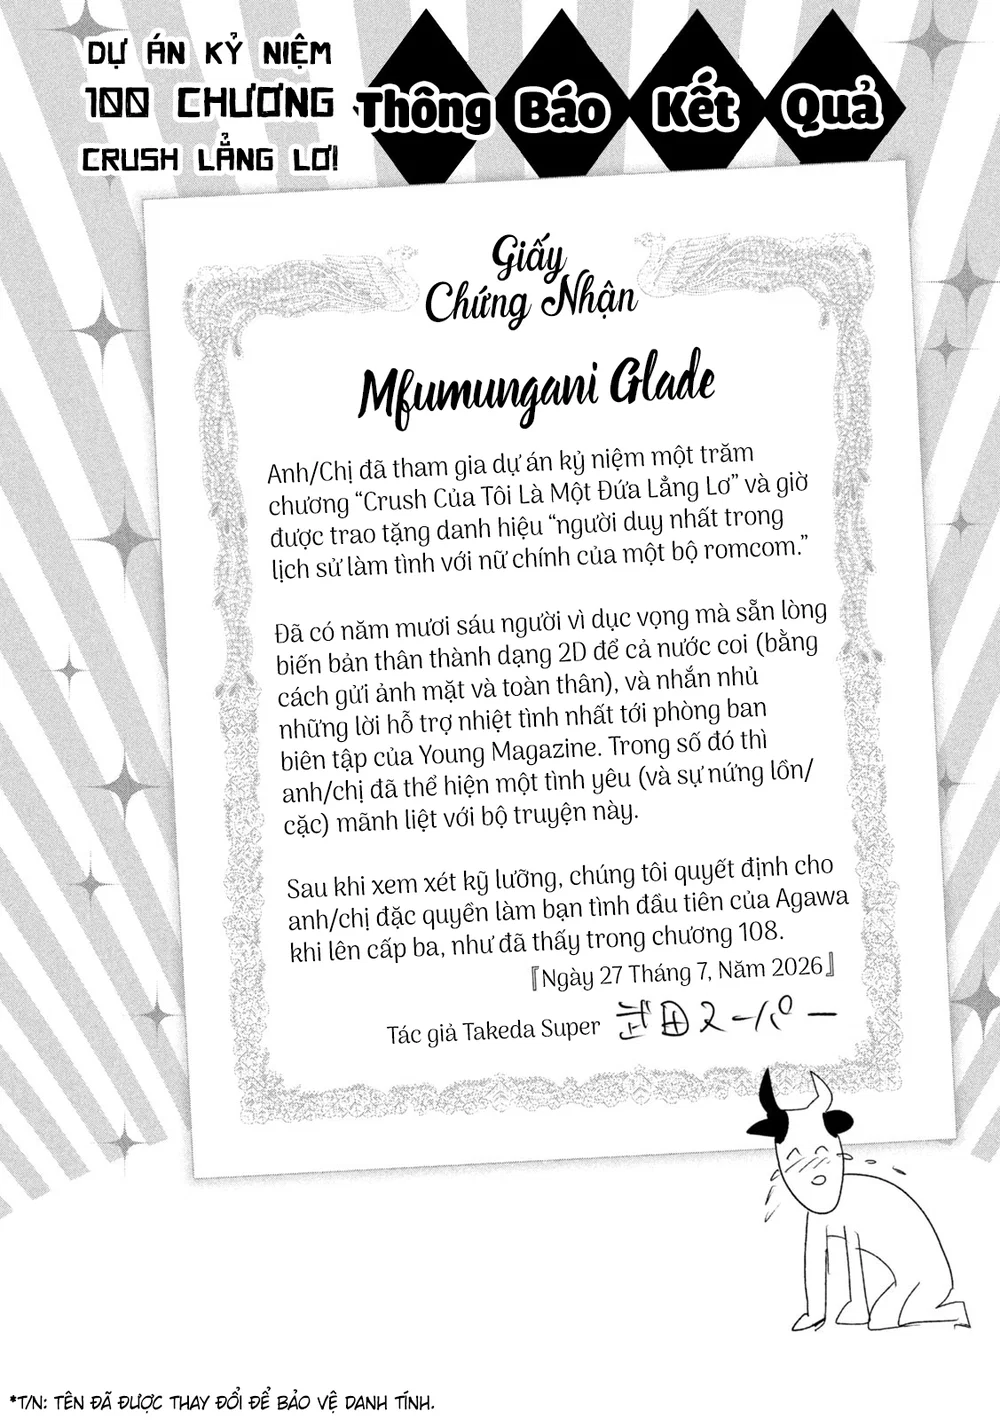 DỰ ÁN KỶ NIỆM
100 CHƯƠNG
CRUSH LẲNG LƠ!
Thông Báo Kết Quả
Giấy
Chứng Nhận
Mfumungani Glade
Anh/Chị đã tham gia dự án kỷ niệm một trăm
chương “Crush Của Tôi Là Một Đứa Lẳng Lơ” và giờ
được trao tặng danh hiệu “người duy nhất trong
lịch sử làm tình với nữ chính của một bộ romcom.”
Đã có năm mươi sáu người vì dục vọng mà sẵn lòng
biến bản thân thành dạng 2D để cả nước coi (bằng
cách gửi ảnh mặt và toàn thân), và nhắn nhủ
những lời hỗ trợ nhiệt tình nhất tới phòng ban
biên tập của Young Magazine. Trong số đó thì
anh/chị đã thể hiện một tình yêu (và sự nứng lồn/
cặc) mãnh liệt với bộ truyện này.
Sau khi xem xét kỹ lưỡng, chúng tôi quyết định cho
anh/chị đặc quyền làm bạn tình đầu tiên của Agawa
khi lên cấp ba, như đã thấy trong chương 108.
『Ngày 27 Tháng 7, Năm 2026』
Tác giả Takeda Super 武田スーパー
*T/N: TÊN ĐÃ ĐƯỢC THAY ĐỔI ĐỂ BẢO VỆ DANH TÍNH.